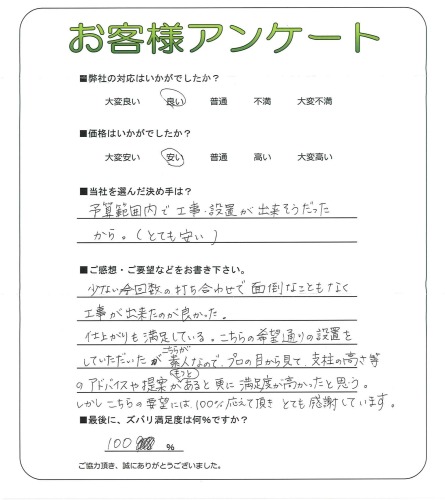 お客様アンケート
■弊社の対応はいかがでしたか?
大変良い 良い 普通 不満 大変不満
■価格はいかがでしたか?
大変安い 安い 普通 高い 大変高い
■当社を選んだ決め手は?
予算範囲内で工事・設置が出来そうだった
から。(とても安い)
■ご感想・ご要望などをお書き下さい。
少ない回数の打ち合わせで面倒なこともなく
工事が出来たのが良かった。
仕上がりも満足している。こちらの希望通りの設置を
していただいたが こちらが素人なので、プロの目から見て、支柱の高さ等
のアドバイスや提案がもっとあると更に満足度が高かったと思う。
しかしこちらの要望には、100%応えて頂きとても感謝しています。
■最後に、ズバリ満足度は何%ですか?
100 %
ご協力頂き、誠にありがとうございました。